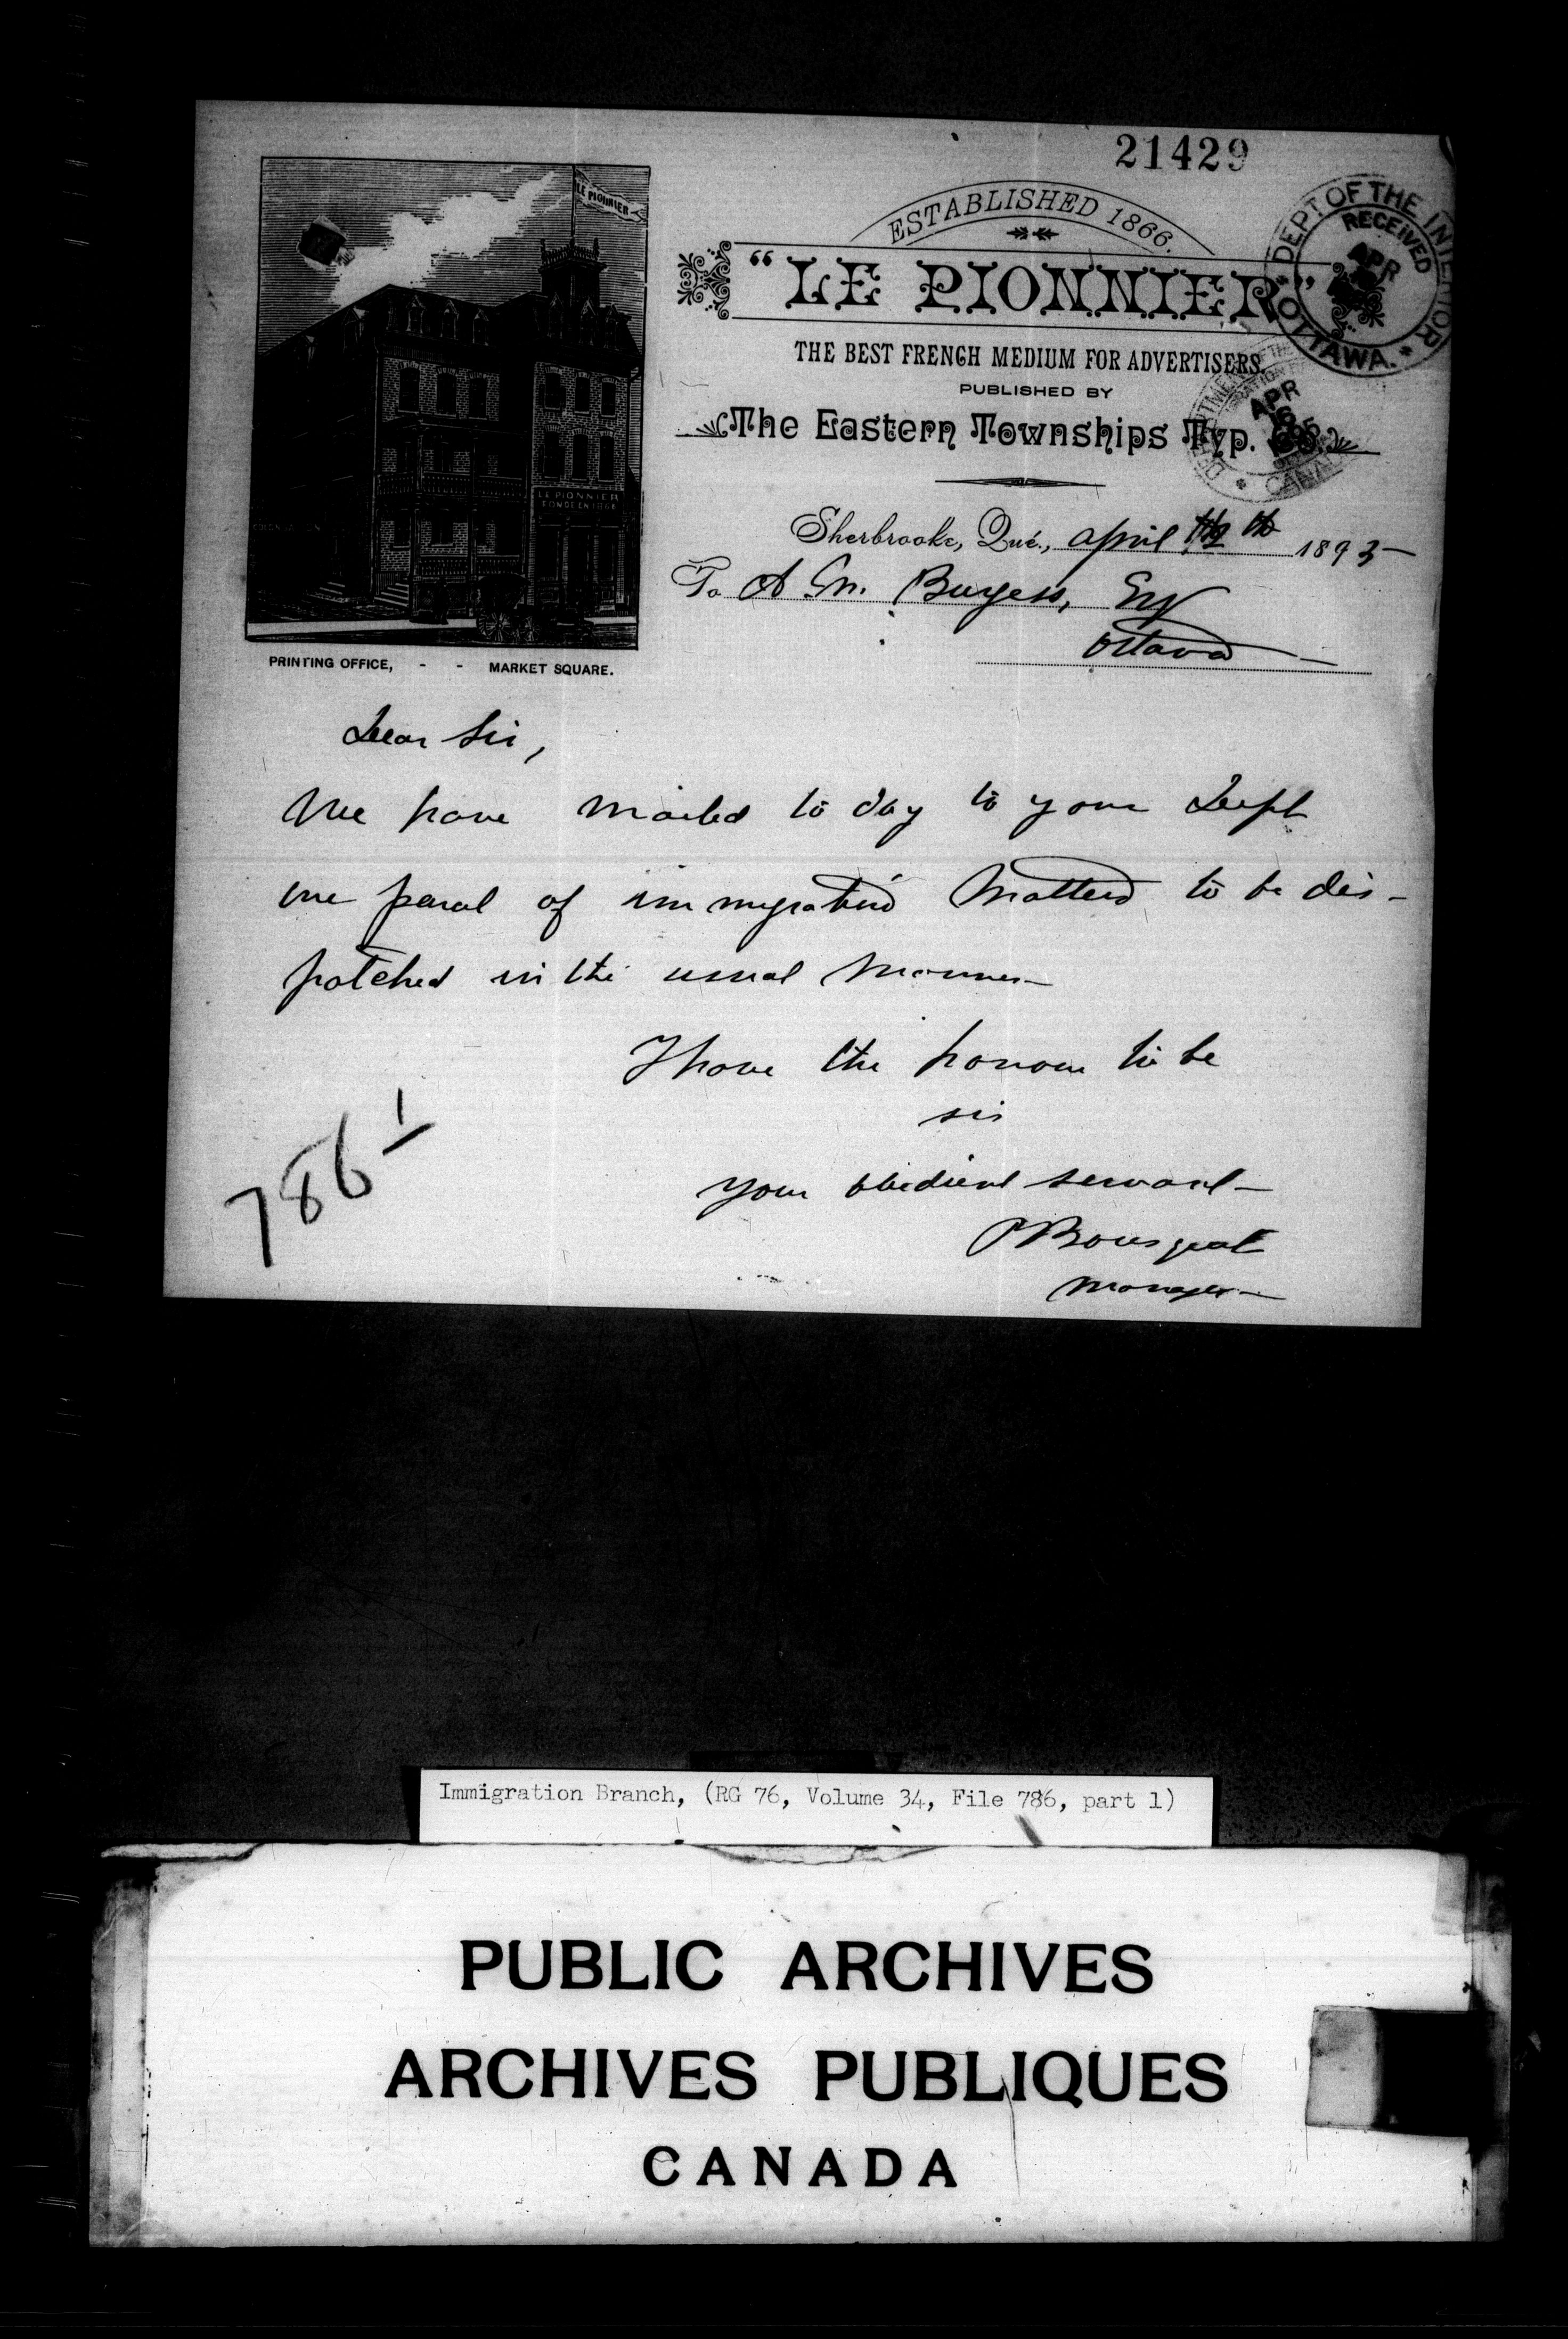 21429
LE PIONNIER
ESTABLISHED 1866.
"LE PIONNIER"
THE BEST FRENCH MEDIUM FOR ADVERTISERS.
PUBLISHED BY
The Eastern Townships Typ. Co.
DEPT OF THE INTERIOR
RECEIVED
APR
OTTAWA.
APR
16
LE PIONNIER
PRINTING OFFICE, - - MARKET SQUARE.
Sherbrooke, Qué., april 189
To A M. Burgess, Esq
Ottawa
Dear Sir,
We have mailed to day to your Dept
one parcel of immigration Matters to be dis-
patched in the usual Manner
I have the honour to be
sir
your obedient servant
P Bousquet
Manager
786 1
Immigration Branch, (RG 76, Volume 34, File 786, part 1)
PUBLIC ARCHIVES
ARCHIVES PUBLIQUES
CANADA